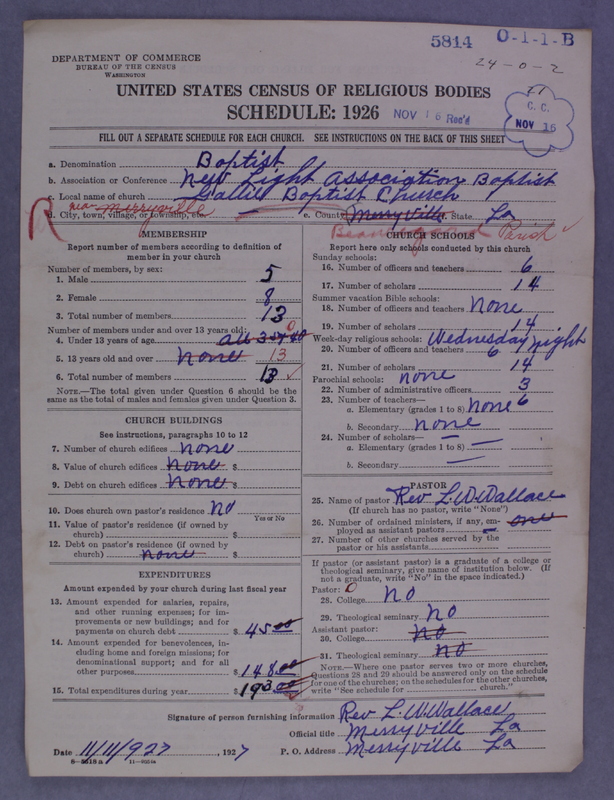 5814 O-1-1-B
24-0-2
DEPARTMENT OF COMMERCE
BUREAU OF THE CENSUS
WASHINGTON
UNITED STATES CENSUS OF RELIGIOUS BODIES
SCHEDULE: 1926
NOV 16 Rec'd
C. C.
NOV 16
FILL OUT A SEPARATE SCHEDULE FOR EACH CHURCH. SEE INSTRUCTIONS ON THE BACK OF THIS SHEET
a. Denomination Baptist
b. Association or Conference New Light Association Baptist
c. Local name of church Baptist Church
near Merryville
d. City, town, village, or township, etc. e. County Merryville State La
Parish
MEMBERSHIP
Report number of members according to definition of member in your church
Number of members, by sex:
1. Male 5
2. Female 8
3. Total number of members 13
Number of members under and over 13 years old:
4. Under 13 years of age 0
5. 13 years old and over none 13
6. Total number of members 13
NOTE.—The total given under Question 6 should be the
same as the total of males and females given under Question 3.
CHURCH BUILDINGS
See instructions, paragraphs 10 to 12
7. Number of church edifices none
8. Value of church edifices none $
9. Debt on church edifices none $
10. Does church own pastor's residence no
Yes or No
11. Value of pastor's residence (if owned by
church) $
12. Debt on pastor's residence (if owned by
church) none $
EXPENDITURES
Amount expended by your church during last fiscal year
13. Amount expended for salaries, repairs,
and other running expenses; for im-
provements or new buildings; and for
payments on church debt $ 45.00
14. Amount expended for benevolences, in-
cluding home and foreign missions; for
denominational support; and for all
other purposes $ 148.00
15. Total expenditures during year $ 193.00
CHURCH SCHOOLS
Report here only schools conducted by this church
Sunday schools:
16. Number of officers and teachers 6
17. Number of scholars 14
Summer vacation Bible schools:
18. Number of officers and teachers none
19. Number of scholars 14
Week-day religious schools: Wednesday night
20. Number of officers and teachers 6
21. Number of scholars 14
Parochial schools: none
22. Number of administrative officers 3
23. Number of teachers—
a. Elementary (grades 1 to 8) none 6
b. Secondary none
24. Number of scholars—
a. Elementary (grades 1 to 8)
b. Secondary
PASTOR
25. Name of pastor Rev L. W. Wallace
(If church has no pastor, write "None")
26. Number of ordained ministers, if any, em-
ployed as assistant pastors one
27. Number of other churches served by the
pastor or his assistants
If pastor (or assistant pastor) is a graduate of a college or
theological seminary, give name of institution below. (If
not a graduate, write "No" in the space indicated.)
Pastor: 0
28. College no
29. Theological seminary no
Assistant pastor:
30. College no
31. Theological seminary no
NOTE.—Where one pastor serves two or more churches,
Questions 28 and 29 should be answered only on the schedule
for one of the churches; on the schedules for the other churches,
write "See schedule for church."
Signature of person furnishing information Rev L. W. Wallace
Official title Merryville La
Date 11/11/927, 1927 P. O. Address Merryville La
8—5518 a 11—9254a